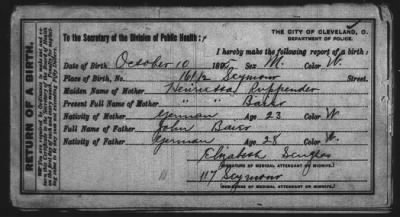 THE CITY OF CLEVELAND, O.
DEPARTMENT OF POLICE.
To the Secretary of the Division of Public Health:
I hereby make the following report of a birth:
Date of Birth October 10 1895 Sex M. Color W
Place of Birth, No. 161 1/2 Seymour Street.
Maiden Name of Mother Henrietta
Present Full Name of Mother " " Baier
Nativity of Mother German Age 23 Color W
Full Name of Father John Baier
Nativity of Father German Age 28 Color W.
Elizabeth
(SIGNATURE OF MEDICAL ATTENDANT OR MIDWIFE.)
117 Seymour
(RESIDENCE OF MEDICAL ATTENDANT OR MIDWIFE.)
RETURN OF A BIRTH.